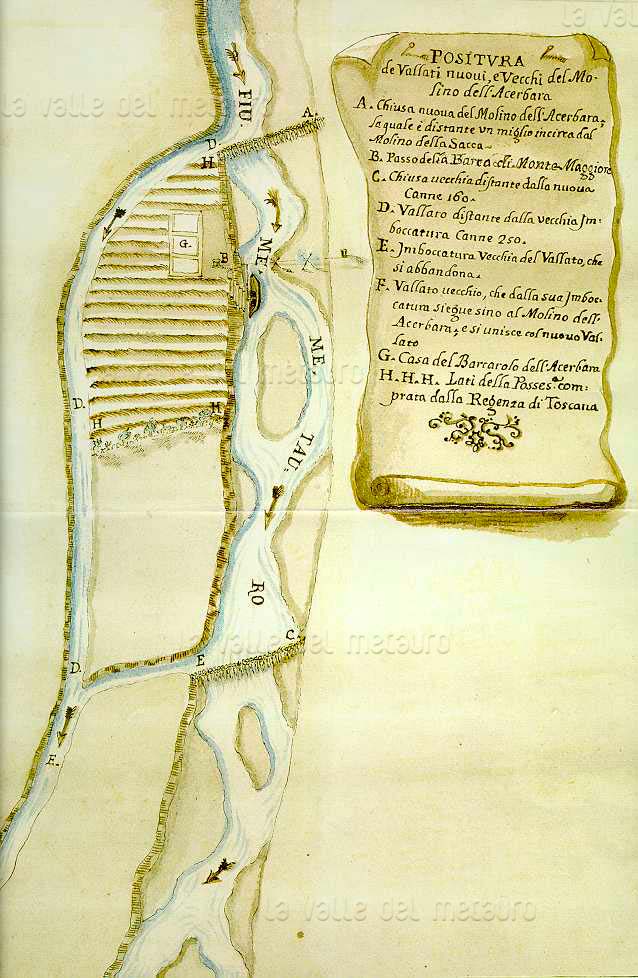 POSITVRA
de Vallati nuoui, e Vecchi del Mo-
lino dell'Acerbara
A. Chiusa nuoua del Molino dell'Acerbara,
la quale è distante vn miglio incirca dal
Molino della Sacca
B. Passo della Barca di Monte Maggiore
C. Chiusa vecchia distante dalla nuoua
Canne 160.
D. Vallato distante dalla vecchia Im-
boccatura Canne 250.
E. Imboccatura Vecchia del Vallato, che
si abbandona.
F. Vallato vecchio, che dalla sua Imboc-
catura siegue sino al Molino dell'
Acerbara, e si unisce col nuouo Val-
lato
G. Casa del Barcarolo dell'Acerbara
H. H. H. Lati della Posses.ne com-
prata dalla Regenza di Toscana
FIU.
ME.
ME.
TAU.
RO
A.
D.
H
G.
B
B
D.
H
H
C.
E
D.
E.
la valle del metauro
la valle del metauro
la valle del metauro
la valle del metauro
la valle del metauro